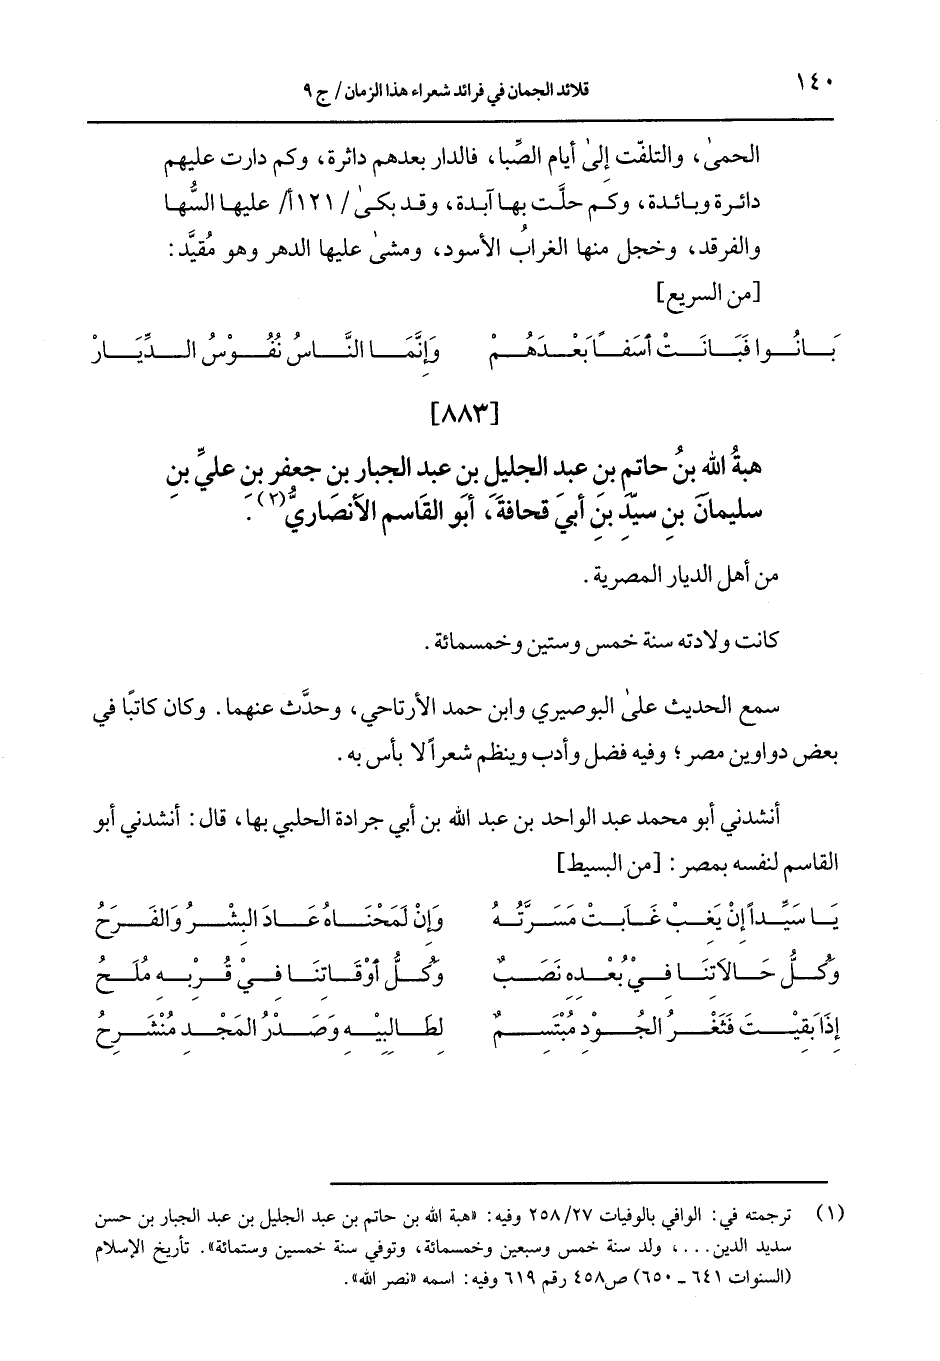 ١٤٠ قلائد الجمان في فرائد شعراء هذا الزمان/ ج ٩
الحمىٰ، والتلفّت إلىٰ أيام الصِّبا، فالدار بعدهم داثرة، وكم دارت عليهم
دائرة وبائدة، وكم حلَّت بها آبدة، وقد بكىٰ/ ١٢١أ/ عليها السُّها
والفرقد، وخجل منها الغرابُ الأسود، ومشىٰ عليها الدهر وهو مُقيَّد:
[من السريع]
بَـانُـوا فَبَـانَـتْ أسَفـاً بَعْـدَهُـمْ وَإِنَّمَـا النَّـاسُ نُفُـوْسُ الـدِّيَـارْ
[٨٨٣]
هبةُ الله بنُ حاتم بن عبد الجليل بن عبد الجبار بن جعفر بن عليِّ بن
سليمانَ بنِ سيِّدِ بنِ أبي قحافةَ، أبو القاسم الأنصَاريُّ(٢).
من أهل الديار المصرية.
كانت ولادته سنة خمس وستين وخمسمائة.
سمع الحديث علىٰ البوصيري وابن حمد الأرتاحي، وحدَّث عنهما. وكان كاتبًا في
بعض دواوين مصر؛ وفيه فضل وأدب وينظم شعراً لا بأس به.
أنشدني أبو محمد عبد الواحد بن عبد الله بن أبي جرادة الحلبي بها، قال: أنشدني أبو
القاسم لنفسه بمصر: [من البسيط]
يَـا سَيِّـداً إِنْ يَغِـبْ غَـابَـتْ مَسَـرَّتُـهُ وَإِنْ لَمَحْنَـاهُ عَـادَ البِشْـرُ وَالفَـرَحُ
وَكُـلُّ حَـالاَتِنَـا فِـيْ بُعْـدِهِ نَصَـبٌ وَكُـلُّ أوْقَـاتِنَـا فِـيْ قُـرْبِـهِ مُلَـحُ
إِذَا بَقِيْـتَ فَثَغْـرُ الجُـوْدِ مُبْتَسِـمٌ لِطَـالِبِيْـهِ وَصَـدْرُ المَجْـدِ مُنْشَـرِحُ
(١) ترجمته في: الوافي بالوفيات ٢٧/ ٢٥٨ وفيه: «هبة الله بن حاتم بن عبد الجليل بن عبد الجبار بن حسن
سديد الدين...، ولد سنة خمس وسبعين وخمسمائة، وتوفي سنة خمسين وستمائة». تأريخ الإسلام
(السنوات ٦٤١ ـ ٦٥٠) ص٤٥٨ رقم ٦١٩ وفيه: اسمه «نصر الله».